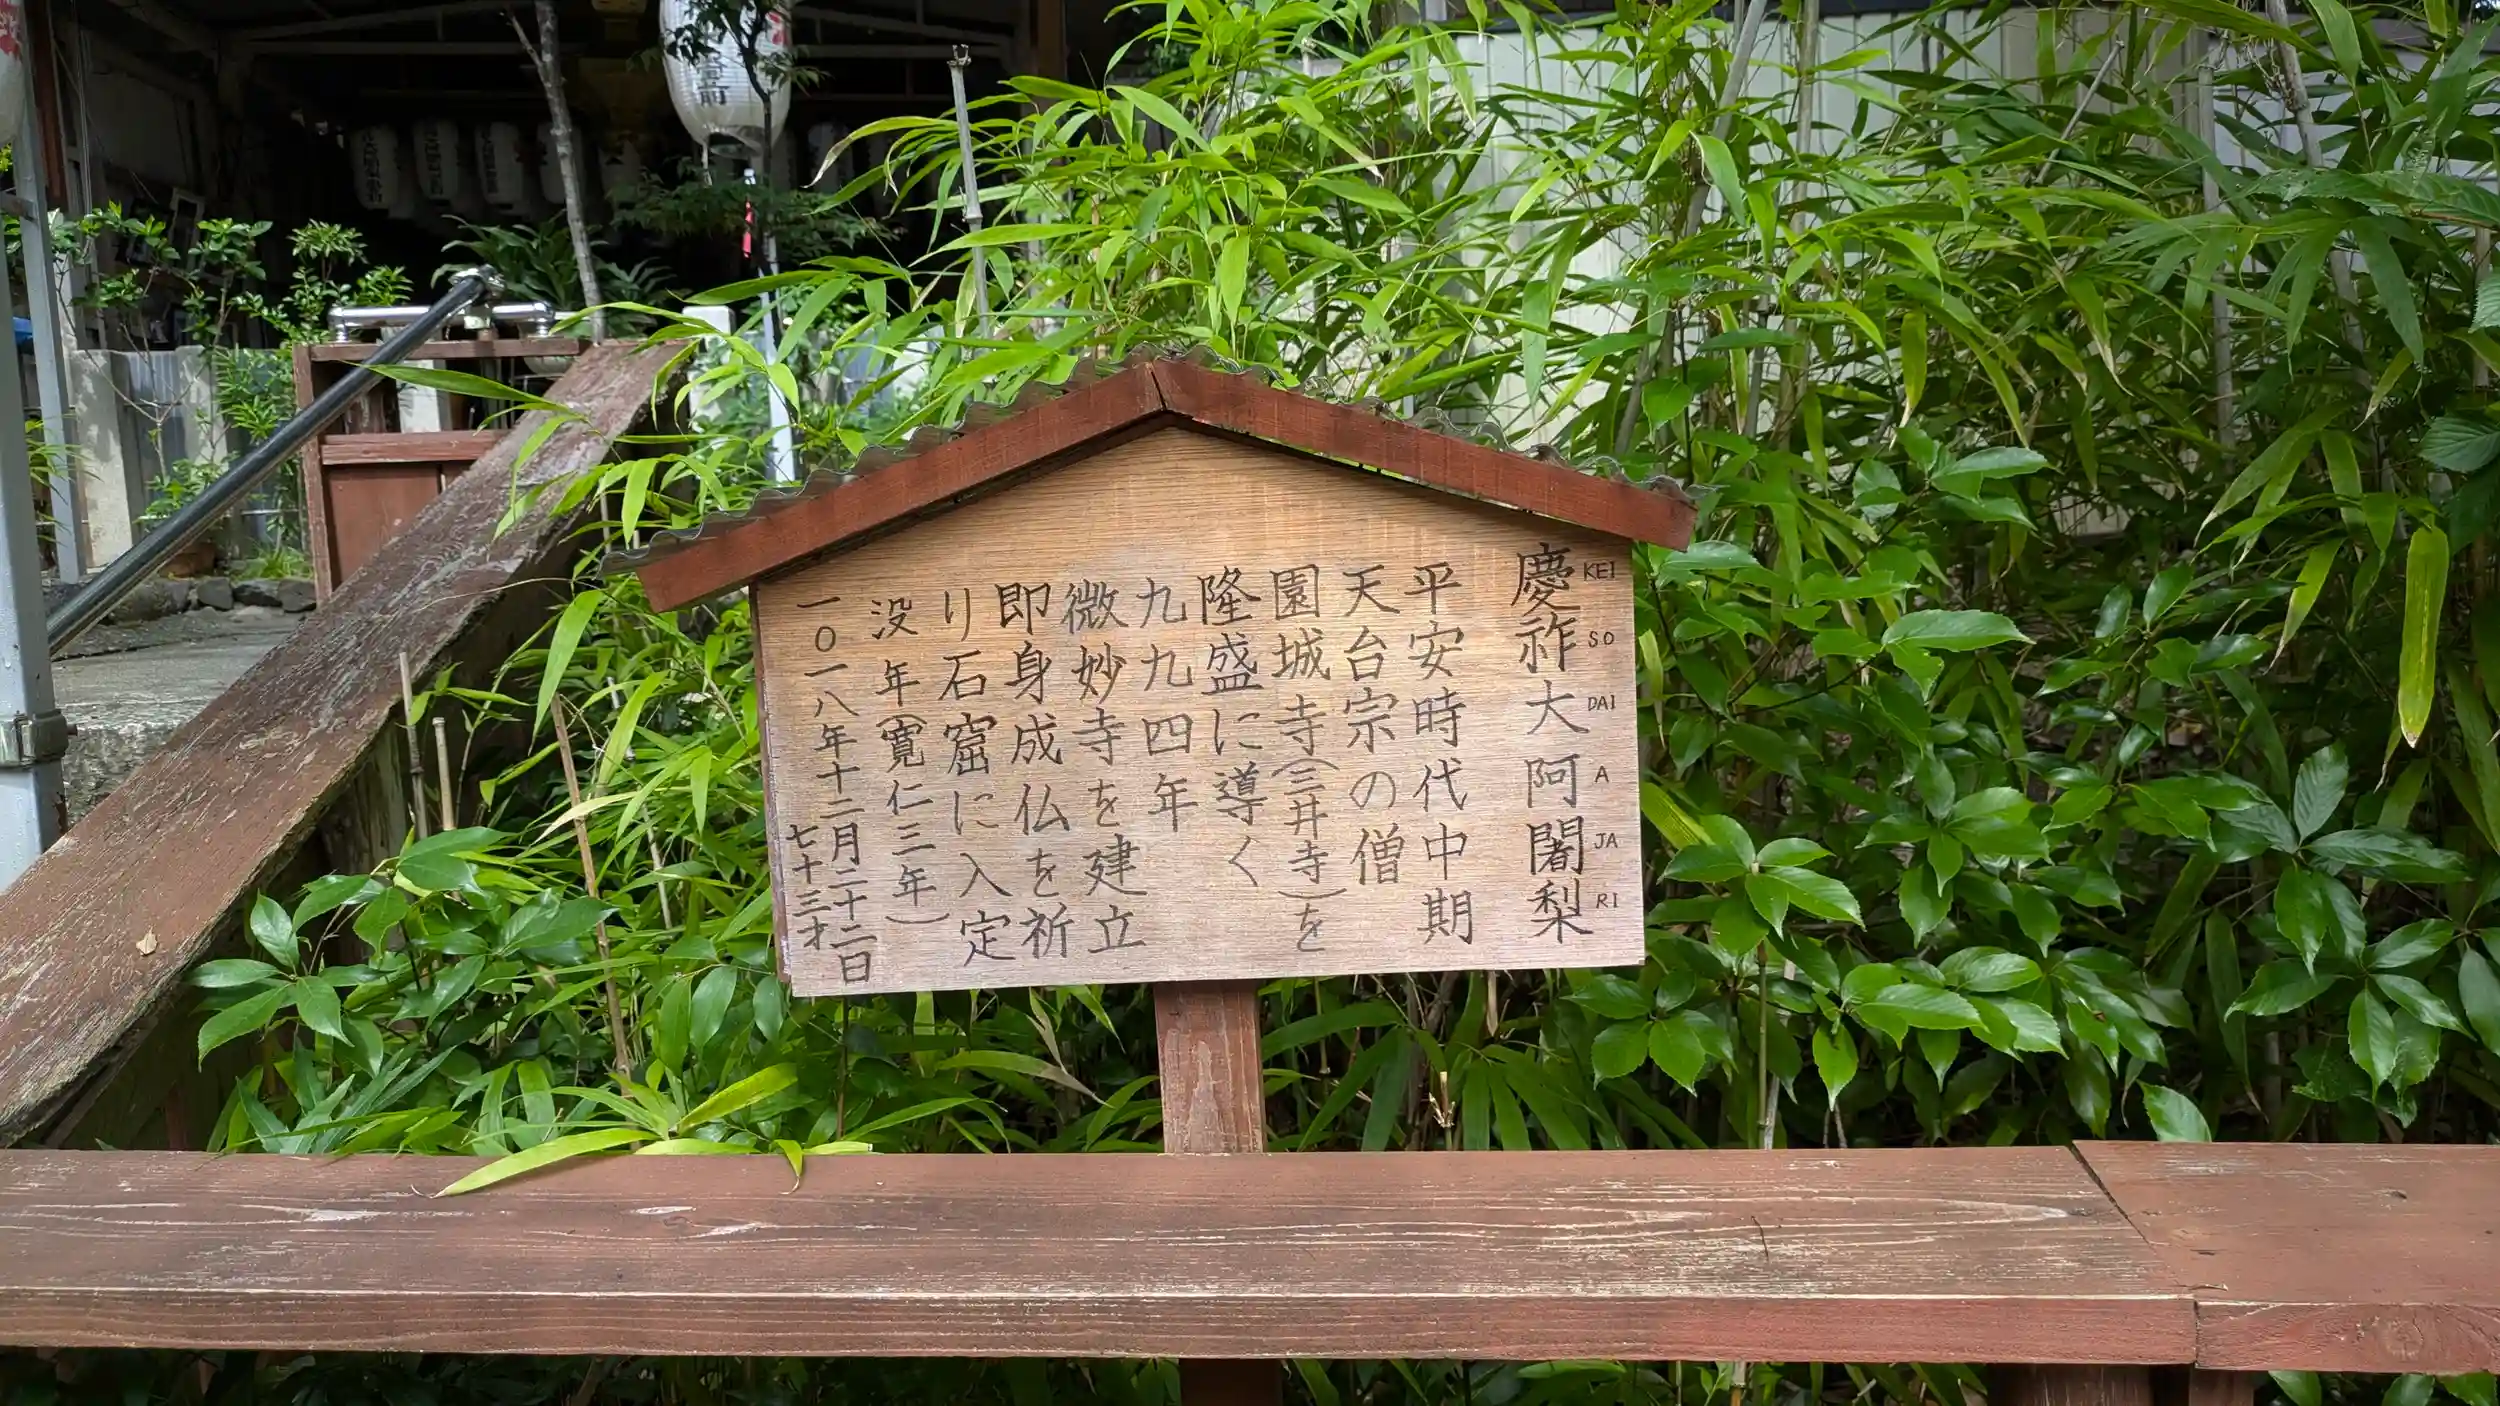 慶祚大阿闍梨
KEI SO DAI A JA RI
平安時代中期
天台宗の僧
園城寺(三井寺)を
隆盛に導く
九九四年
微妙寺を建立
即身成仏を祈
り石窟に入定
没年(寛仁三年)
一〇一八年十二月二十二日
七十三才